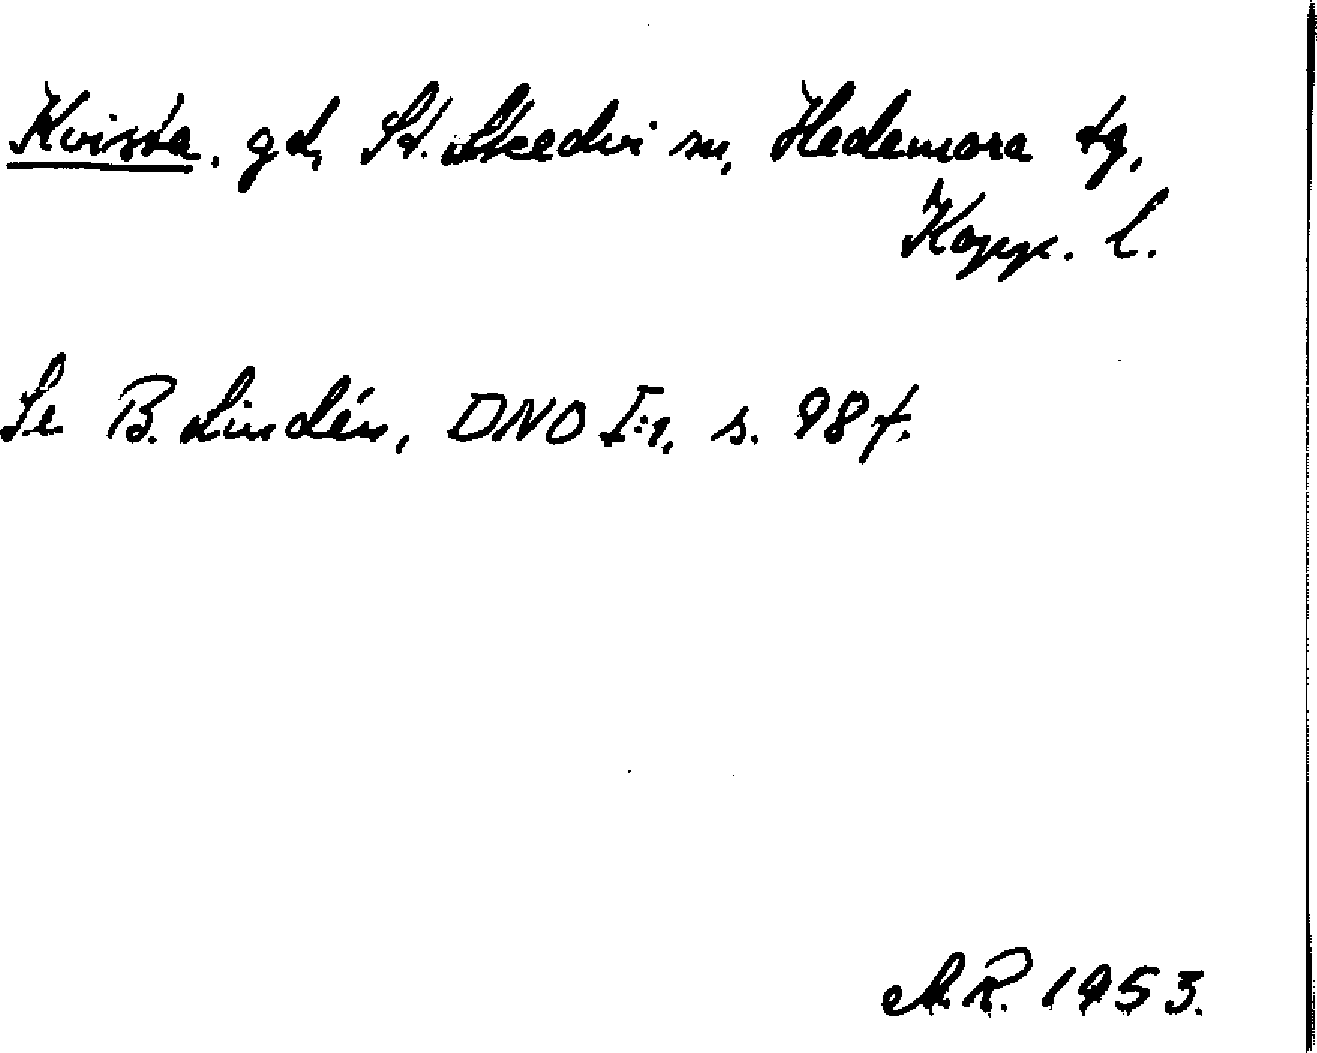 Kvista. gd, St. Skedvi sn, Hedemora tg,
Kopp. l.
Se B. Lindén, DNO I:1, s. 98 f.
A.R. 1953.